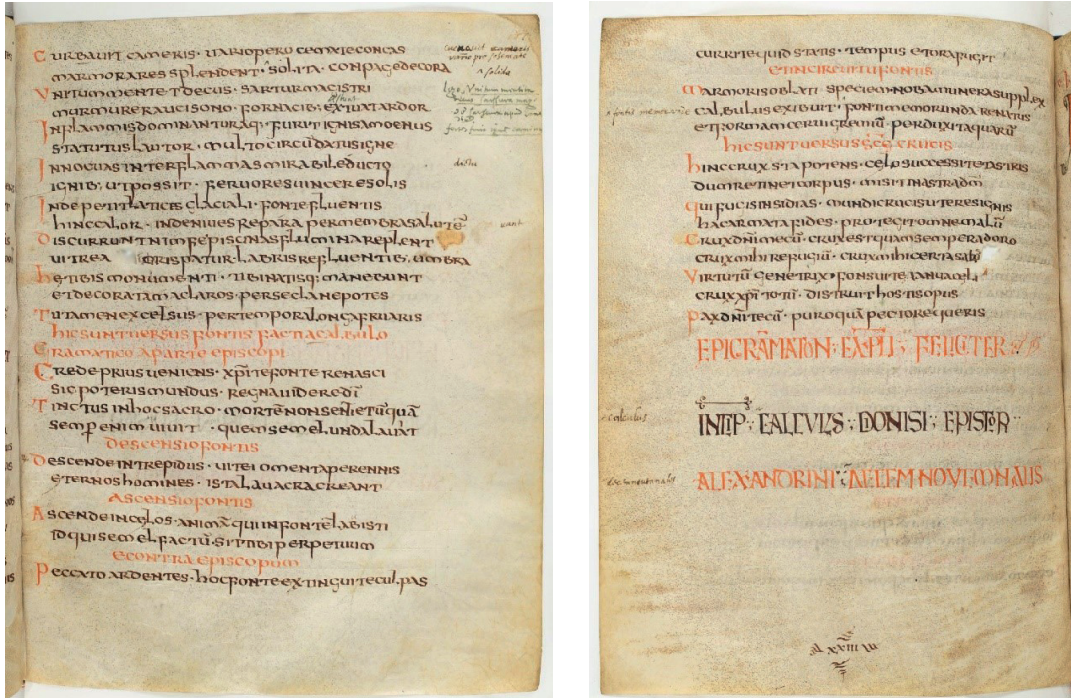 CURBAUIT CAMERIS · UARIO PERO CEMATE CONCAS
MARMORA RES SPLENDENT · SOLITA · CONPAGE DECORA
UNITUMMENTET DECUS · SARTUR MACISTRI
MURMURE RAUCISONO · FORNACIS · EXTUAT ARDOR
IN FLAMMIS DOMINANTURAQ; FURIT IGNIS AMOENUS
STAT UTILIS AUTOR · MULTO CIRCUDATUS IGNE
INNOCUAS INTER FLAMMAS MIRABILE DUCTO
IGNIB; UT POSSIT · FERUORES UINCERE SOLIS
INDE PETIT LATICES GLACIALI · FONTE FLUENTIS
HINC CALOR · INDE NIUES REPARA PER MEMBRA SALUTE
DISCURRUNT NIMFE PISCINAS FLUMINA REPLENT
UITREA CRISPATUR · LABRIS REFLUENTIB; UMBRA
HETIBIS MONUMENTI · TIBI NATISQ; MANEBUNT
ET DECORATAM ACLAROS · PER SECLA NEPOTES
TUTAMEN EXCELSUS · PER TEMPORA LONGA FRUARIS
HIC SUNT UERSUS FONTIS FACTI A CALBULO
GRAMATICO A PARTE EPISCOPI
CREDE PRIUS UENIENS · XPI TE FONTE RENASCI
SIC POTERIS MUNDUS · REGNA UIDERE DI
TINCTUS IN HOC SACRO · MORTE NON SENIET UQUA
SEMPER ENIM UIUIT · QUEM SEMEL UNDA LAUAT
DESCENSIO FONTIS
DESCENDE INTREPIDUS · UITE IOMENTA PERENNIS
ETERNOS HOMINES · ISTA LAUACRA CREANT
ASCENSIO FONTIS
ASCENDE IN CELOS · ANIMA QUI IN FONTE LABISTI
IDQUI SEMEL FACTU · SIT TIBI PERPETUUM
E CONTRA EPISCOPUM
PECCATO ARDENTES · HOC FONTE EXTINGUITE CULPAS
CURRITE QUID STATIS · TEMPUS ET ORA FUGIT
ET IN CIRCUITU FONTIS
MARMORIS OBLATI · SPECIEM NOBA MUNERA SUPPLEX
CALBULUS EXIBUIT · FONTI MEMORUNDA RENATUS
ET FORMAM CERUI GREMIU · PERDUXIT AQUARU
HIC SUNT UERSUS SCE CRUCIS
HINC CRUX STA POTENS · CELO SUCCESSIT ET ASTRIS
DUM RETINET CORPUS · MISIT IN ASTRA DM
QUI FUCIS INSIDIAS · MUNDI CRUCIS UTERE SIGNIS
HAC ARMATA FIDES · PROTEGIT OMNE MALU
CRUX DNI MECU · CRUX EST QUAM SEMPER ADORO
CRUX MIHI REFUGIU · CRUX MIHI CERTA SAL
VIRTUTU GENETRIX · FONS UITE IANUA CELI
CRUX XPI TOTU · DISTRUIT HOSTIS OPUS
PAX DNI TECU · PURO QUA PECTORE QUERIS
EPIGRAMATON EXPLI FELICITER
INCIP CALCULUS DONISI EPISTOR
ALEXANDRINI DECEMNOVEMNALIS
XXIIII